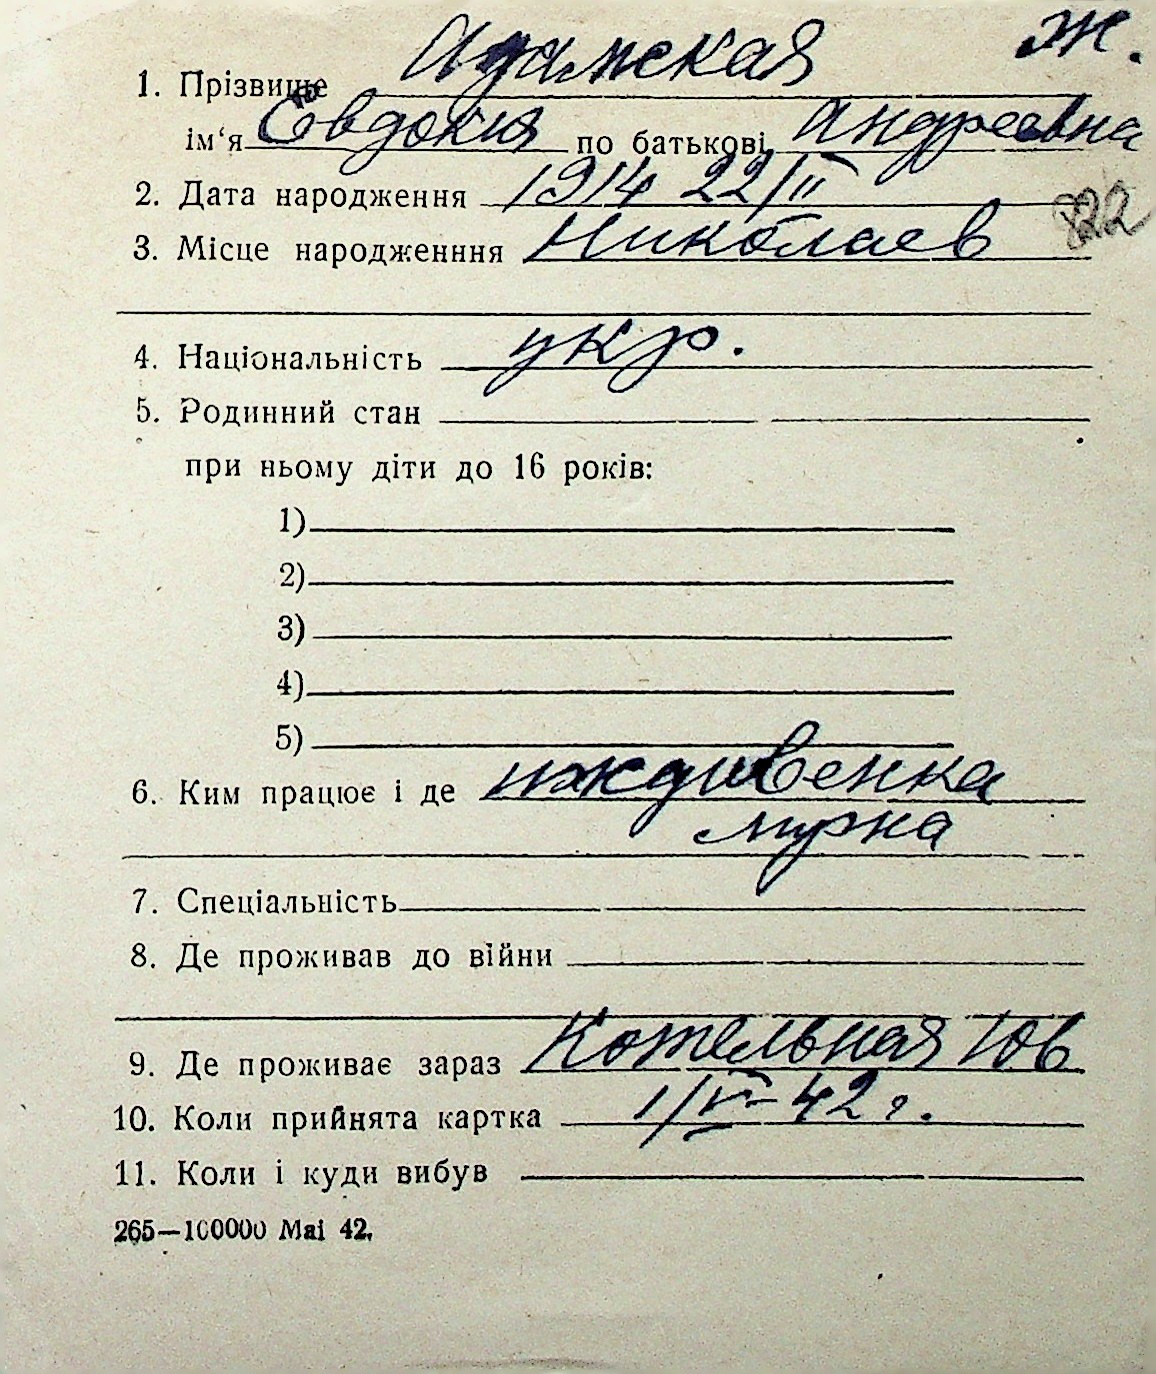 Ж.
1. Прізвище Адамская
ім‘я Евдокия по батькові Андреевна
2. Дата народження 1914 22/II
822
3. Місце народженння Николаев
4. Національність укр.
5. Родинний стан
при ньому діти до 16 років:
1)
2)
3)
4)
5)
6. Ким працює і де иждивенка
мужа
7. Спеціальність
8. Де проживав до війни
9. Де проживає зараз Котельная 10в
10. Коли прийнята картка 1/VI-42 г.
11. Коли і куди вибув
265—100000 Mai 42.